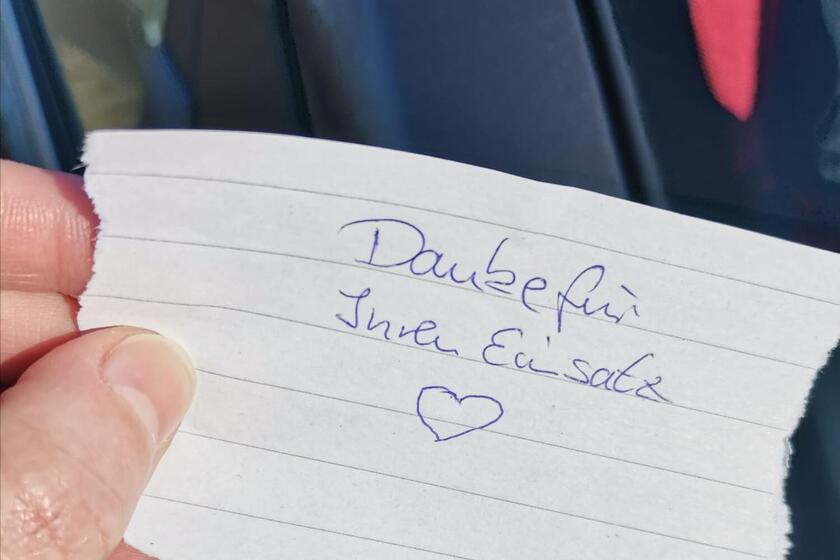 Danke für
Ihren Einsatz